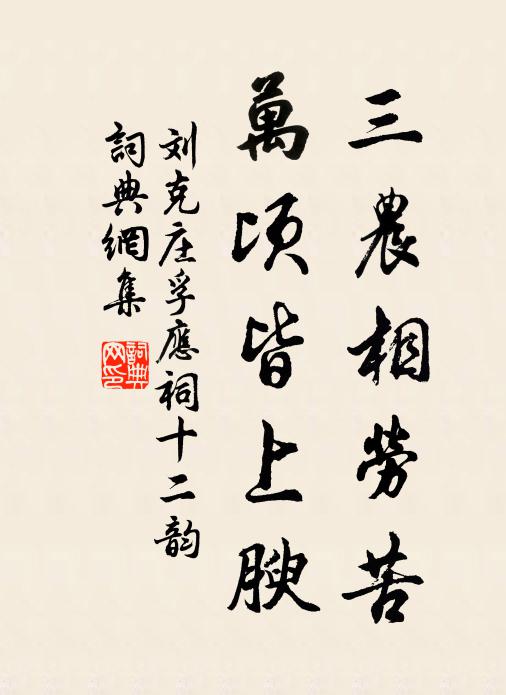 三農相勞苦
萬頃皆上腴
刘克庄孚應祠十二韵
詞典網集
詞典网印